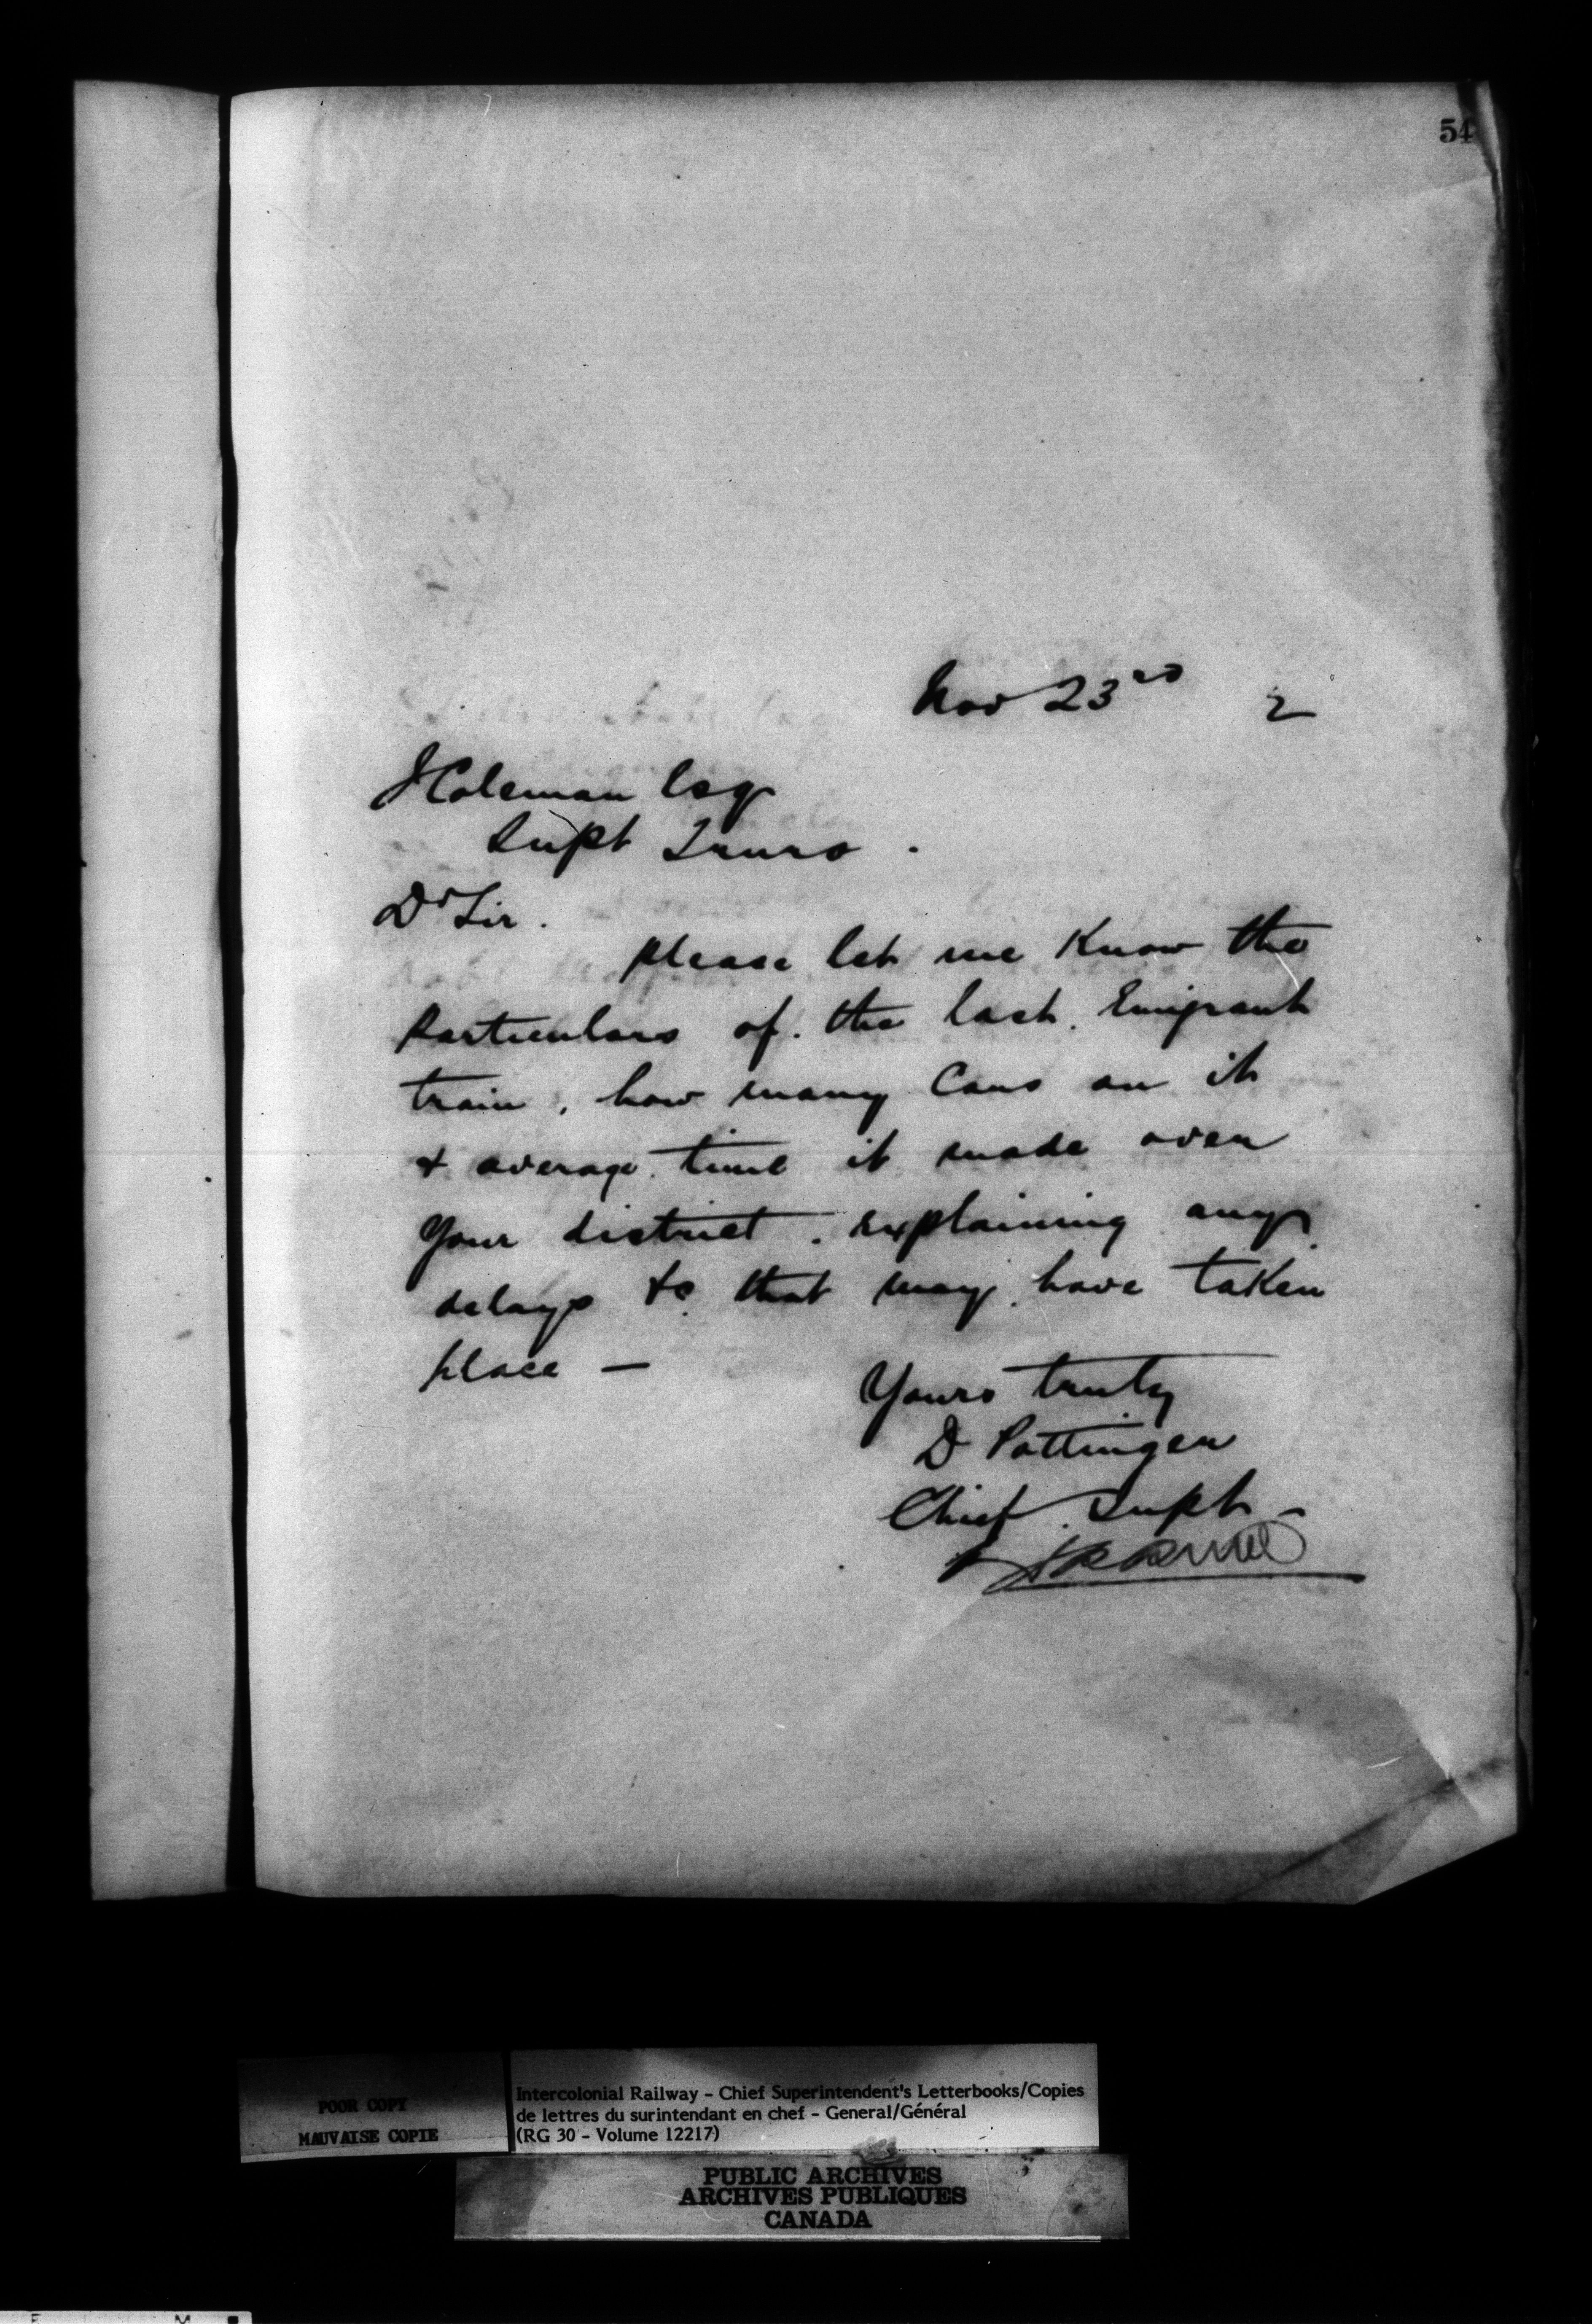 54
Nov 23rd 2
J Coleman Esq
Supt Truro .
Dr Sir .
please let me know the
particulars of the last Emigrant
train , how many Cars on it
& average time it made over
your district . explaining any
delays &c that may have taken
place —
Yours truly
D Pottinger
Chief Supt -
POOR COPY
MAUVAISE COPIE
Intercolonial Railway - Chief Superintendent's Letterbooks/Copies
de lettres du surintendant en chef - General/Général
(RG 30 - Volume 12217)
PUBLIC ARCHIVES
ARCHIVES PUBLIQUES
CANADA